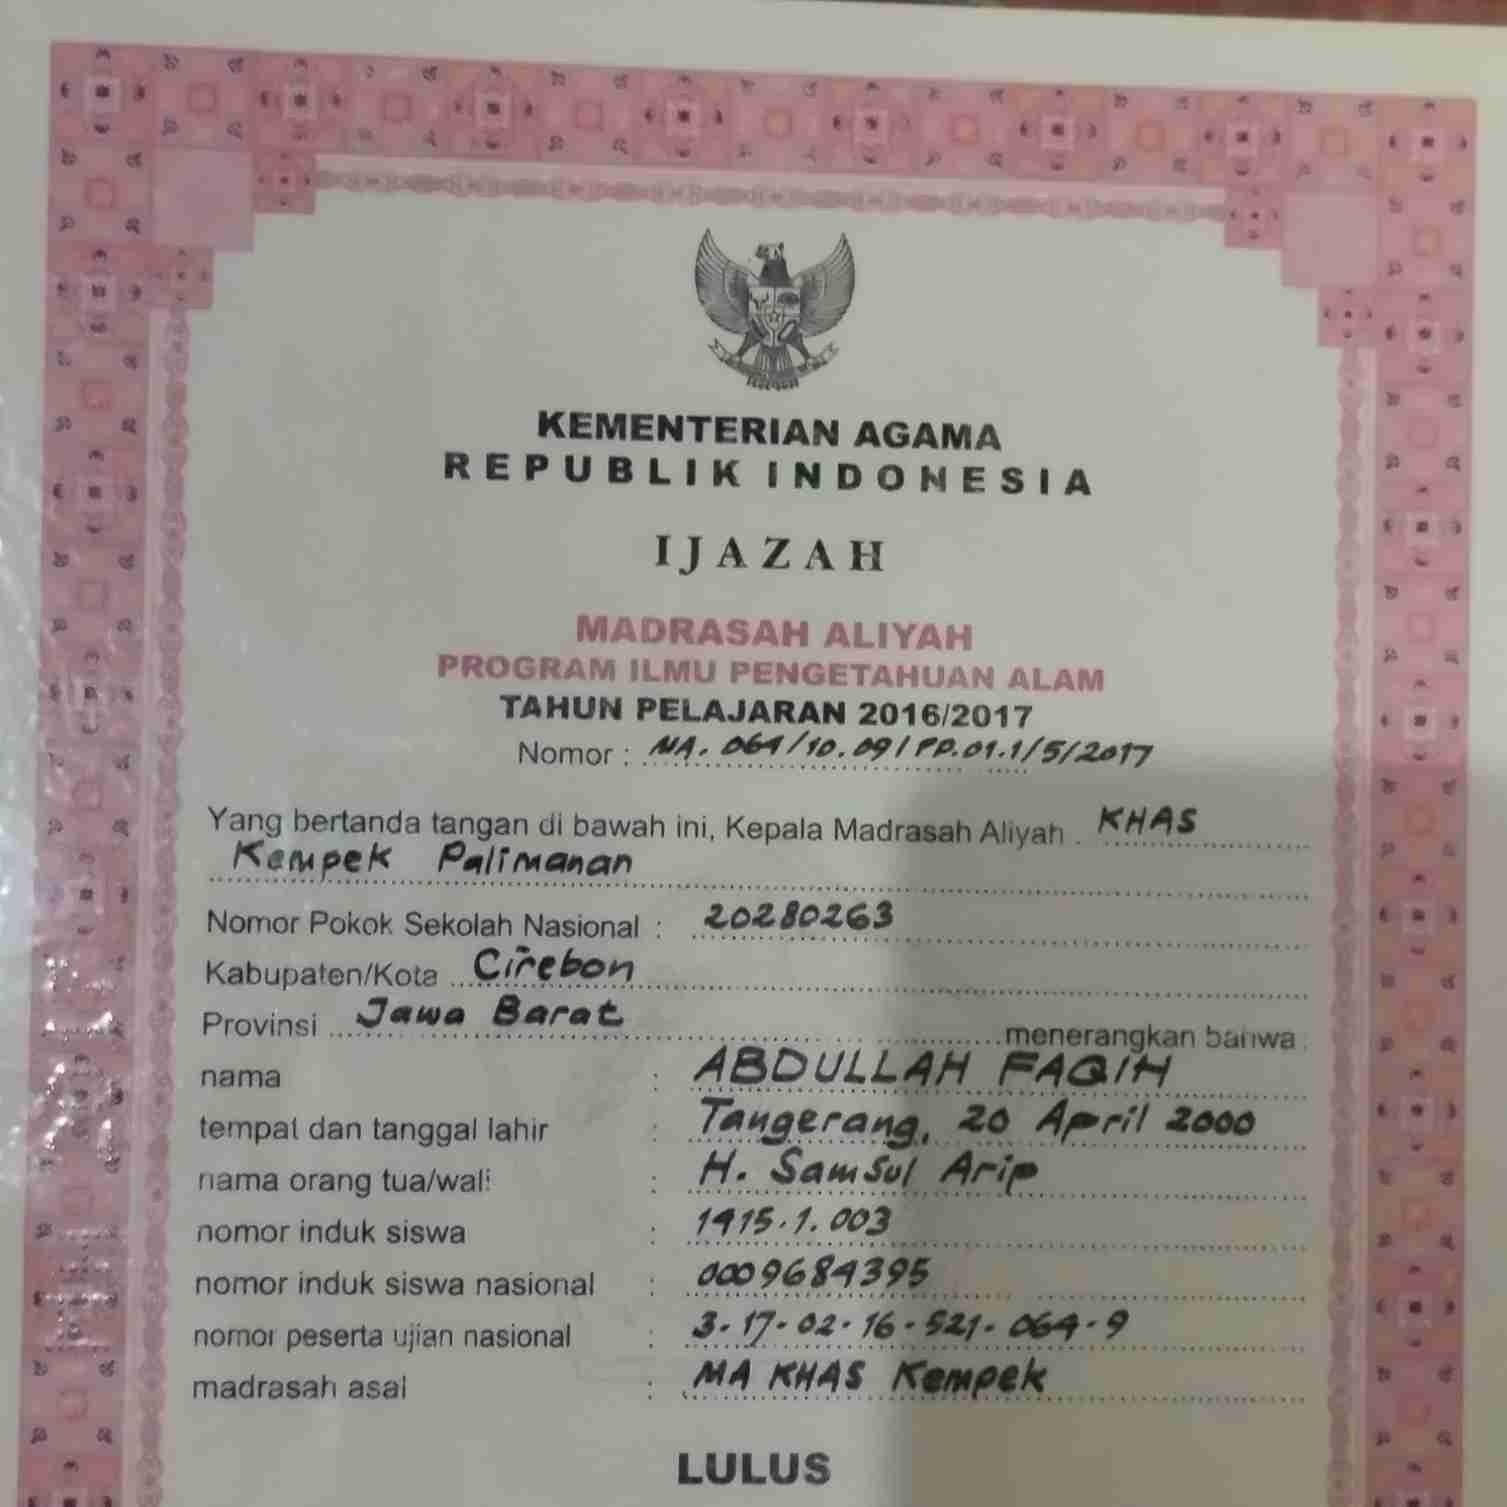 KEMENTERIAN AGAMA
REPUBLIK INDONESIA
IJAZAH
MADRASAH ALIYAH
PROGRAM ILMU PENGETAHUAN ALAM
TAHUN PELAJARAN 2016/2017
Nomor : MA. 064/10.09/PP.01.1/5/2017
Yang bertanda tangan di bawah ini, Kepala Madrasah Aliyah KHAS
Kempek Palimanan
Nomor Pokok Sekolah Nasional : 20280263
Kabupaten/Kota Cirebon
Provinsi Jawa Barat menerangkan bahwa:
nama : ABDULLAH FAQIH
tempat dan tanggal lahir : Tangerang, 20 April 2000
nama orang tua/wali : H. Samsul Arip
nomor induk siswa : 1415.1.003
nomor induk siswa nasional : 0009684395
nomor peserta ujian nasional : 3-17-02-16-521-064-9
madrasah asal : MA KHAS Kempek
LULUS